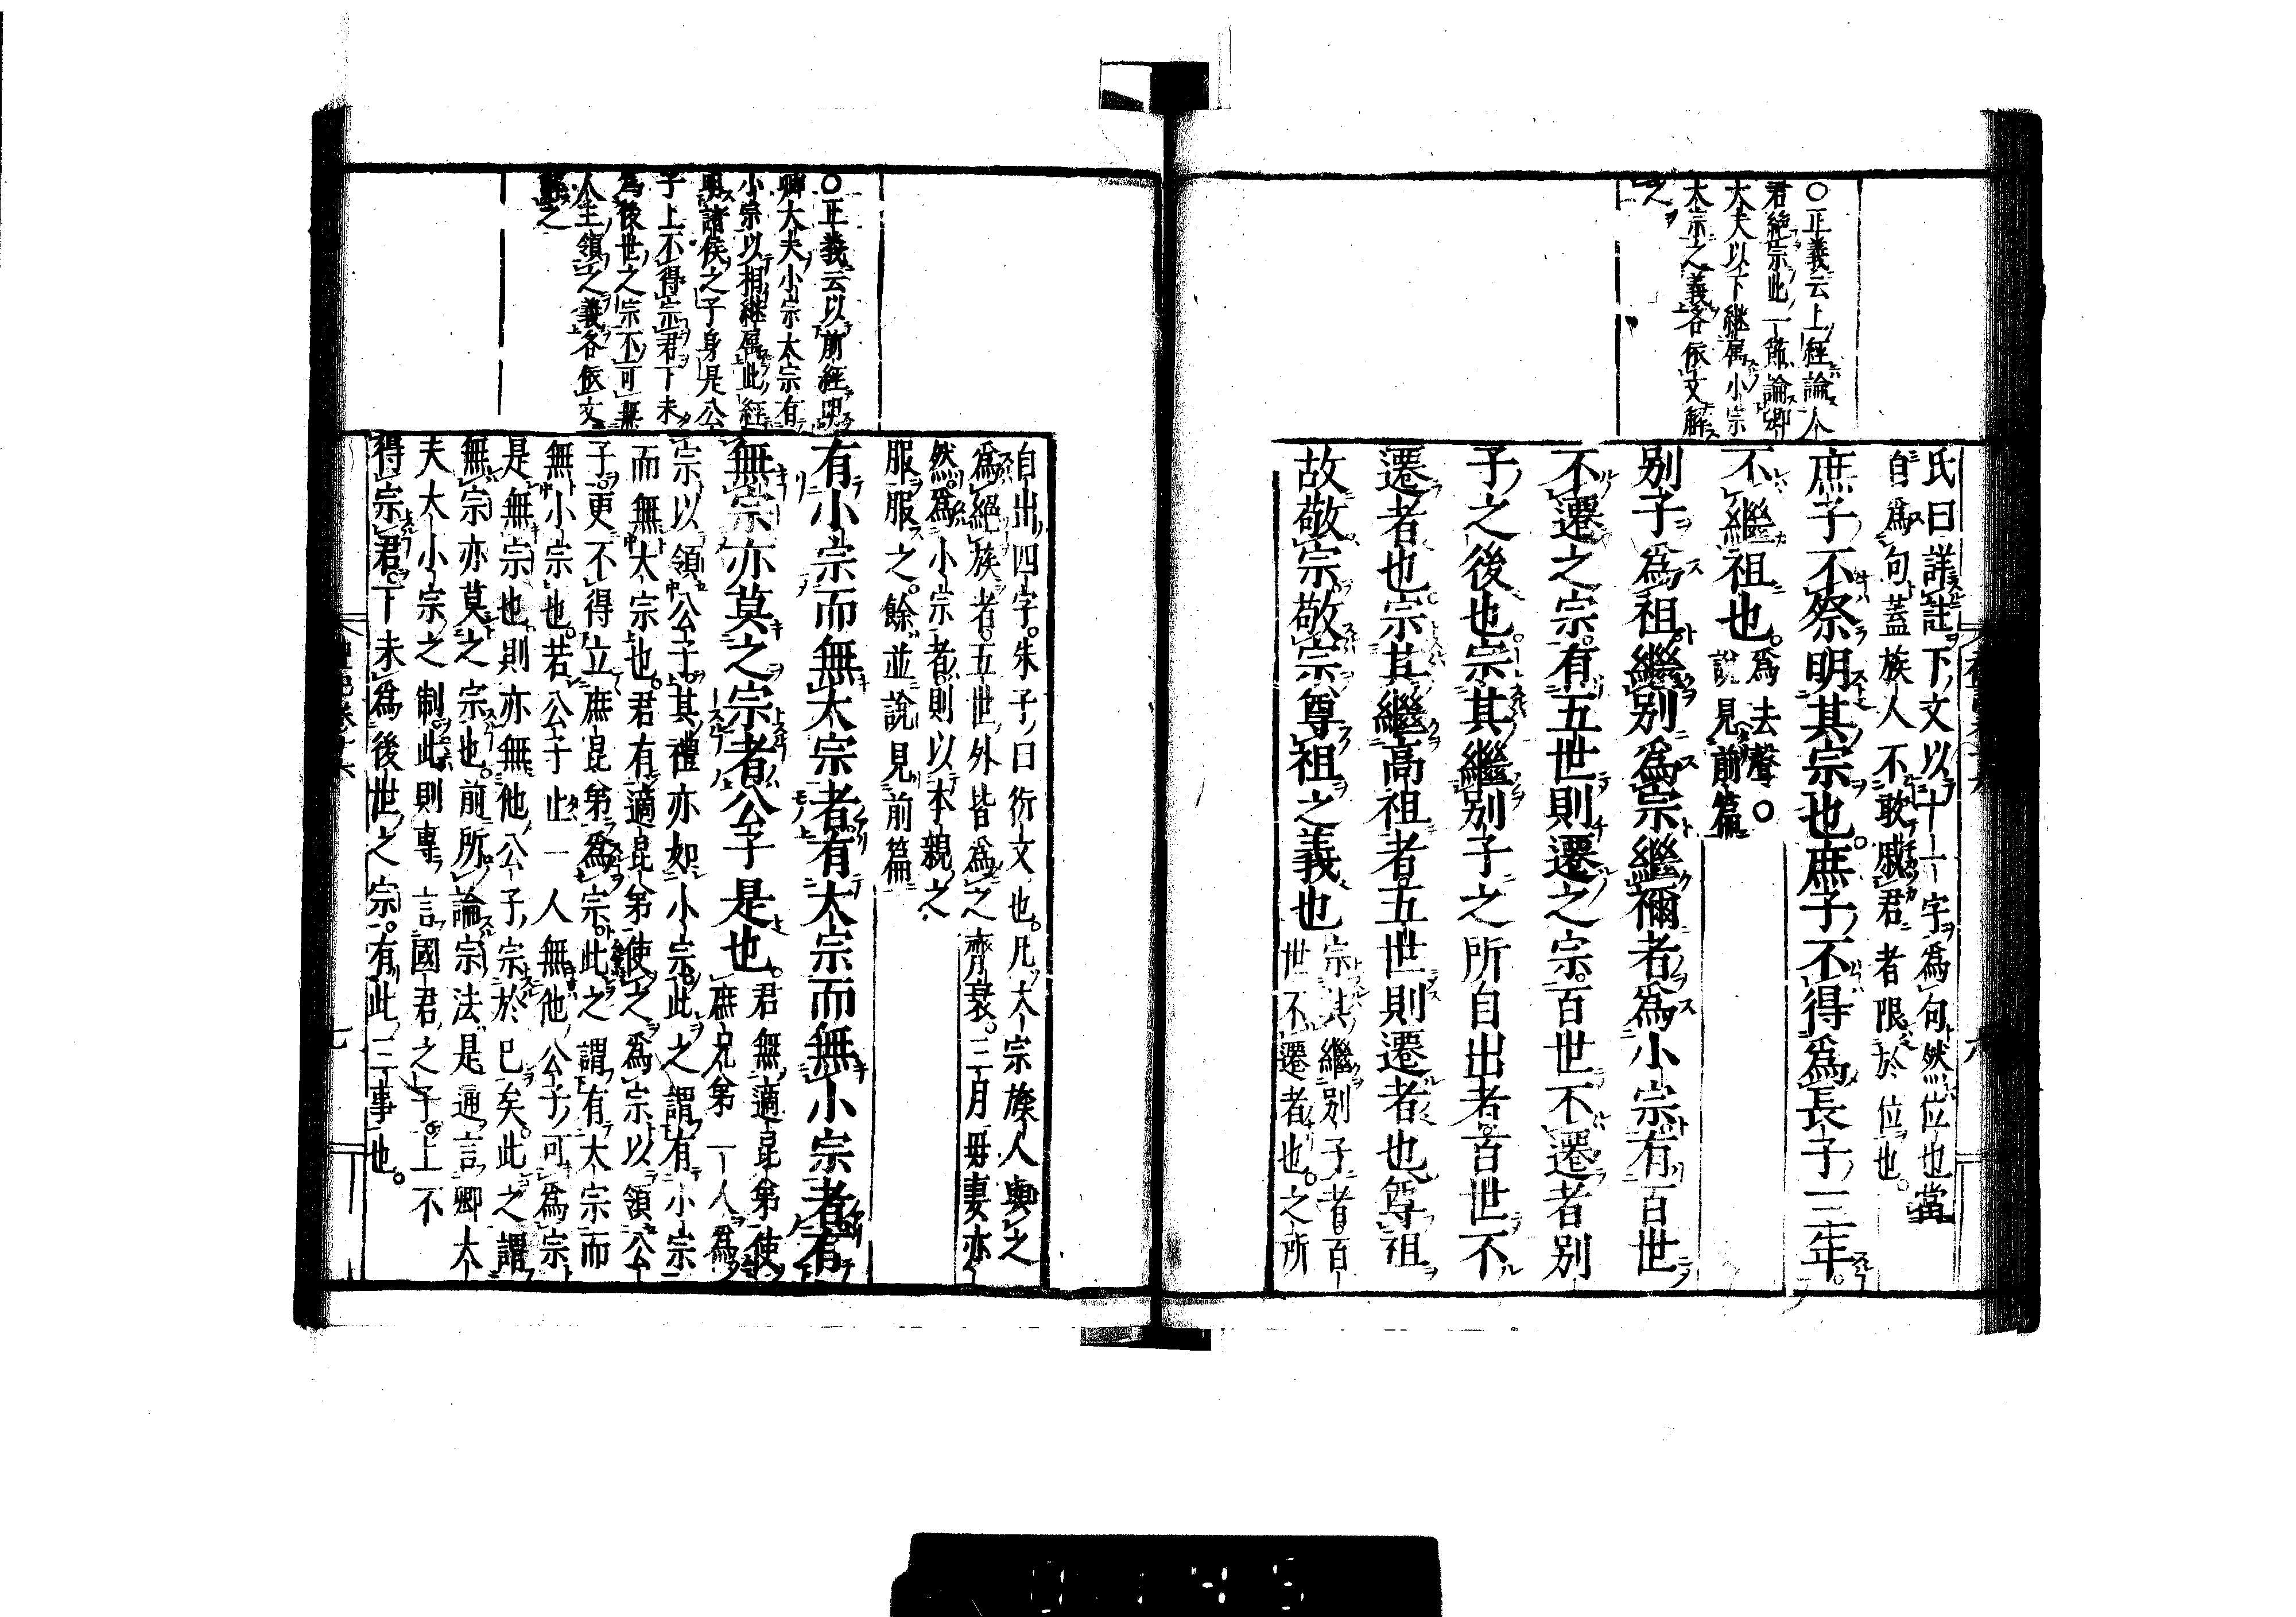 ○正義云上經論人
君絶宗此一節論卿
大夫以下継属小宗
大宗之義各依文解
之
氏曰詳註下文以十一字爲句然位也當
自爲句蓋族人不敢戚君者限於位也。
庶子不祭明其宗也。庶子不得爲長子三年。
不繼祖也。爲去聲○
說見前篇
別子爲祖繼別爲宗繼禰者爲小宗有百世
不遷之宗。有五世則遷之宗。百世不遷者別
子之後也。宗其繼別子之所自出者。百世不
遷者也宗其繼高祖者五世則遷者也尊祖
故敬宗。敬宗尊祖之義也
宗其繼別子者。百
世不遷者也。之所
○正義云以前經明
卿大夫小宗大宗有
小宗以相継属此經
明諸侯之子身是公
子上不得宗君下未
爲後世之宗不可無
人主領之義各依文
解之
自出四字。朱子曰衍文也。凡大宗族人與之
爲絶族者。五世外皆爲之齊衰。三月毋妻亦
然。爲小宗者。則以本親之
服服之。餘並說見前篇
有小宗而無大宗者。有大宗而無小宗者有
無宗亦莫之宗者公子是也。
君無適昆弟使
庶兄弟一人爲
宗以領公子。其禮亦如小宗。此之謂有小宗
而無大宗也。君有適昆弟使之爲宗以領公
子。更不得立庶昆弟爲宗。此之謂有大宗而
無小宗也。若公子止一人無他公子可爲宗
是無宗也則亦無他公子宗於已矣。此之謂
無宗亦莫之宗也。前所論宗法是通言卿大
夫大小宗之制。此則專言國君之子。上不
得宗君。下未爲後世之宗。有此三事也。
七